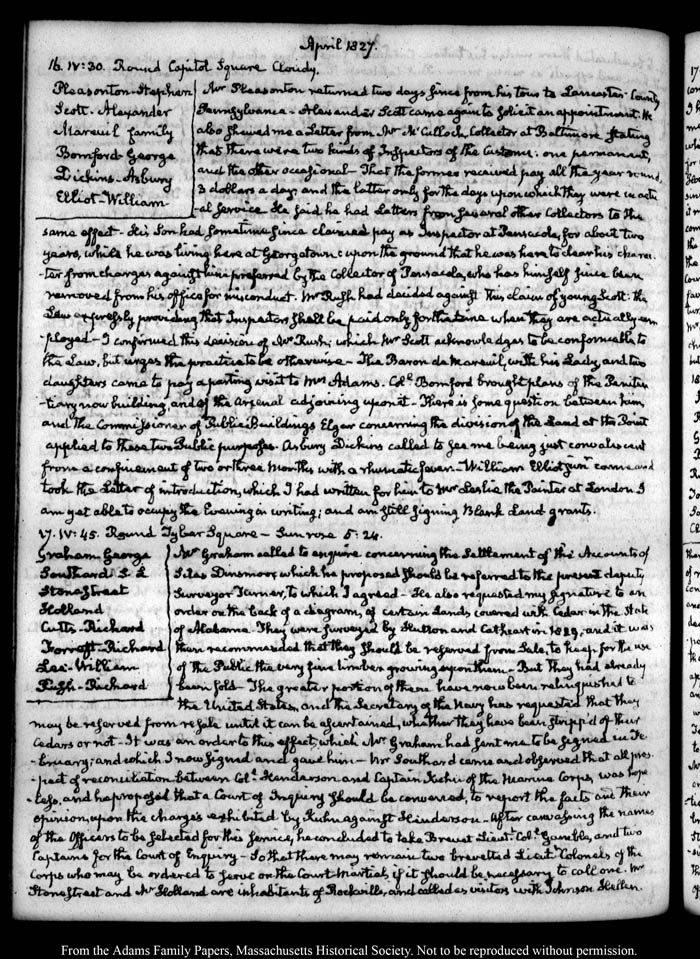 April 1827.
16. IV:30. Round Capitol Square Cloudy.
Pleasonton-Stephen
Scott-Alexander
Mareuil family
Bomford-George
Dickins-Asbury
Elliot-William
Mr Pleasonton returned two days since from his tour to Lancaster County
Pennsylvania - Alexander Scott came again to solicit an appointment. He
also shewed me a Letter from Mr McCulloch, Collector at Baltimore stating
that there were two kinds of Inspectors of the Customs: one permanent,
and the other occasional - That the former received pay all the year round,
3 dollars a day; and the latter only for the days upon which they were in actu
-al service. He said he had Letters from several other Collectors to the
same effect - His Son had sometime since claimed pay as Inspector at Pensacola, for about two
years, while he was living here at Georgetown: upon the ground that he was here to clear his charac
-ter from charges against him preferred by the Collector of Pensacola, who has himself since been
removed from his office for misconduct. Mr Rush had decided against this claim of young Scott: the
Law expressly providing that Inspectors shall be paid only for the time when they are actually em
-ployed - I confirmed this decision of Mr Rush; which Mr Scott acknowledges to be conformable to
the Law, but urges the practice to be otherwise - The Baron de Mareuil, with his Lady, and two
daughters came to pay a parting visit to Mrs Adams. Coll. Bomford brought plans of the Peniten
-tiary now building, and of the Arsenal adjoining upon it - There is some question between him,
and the Commissioner of Public Buildings Elgar concerning the division of the Land at the Point
applied to these two Public purposes. Asbury Dickins called to see me being just convalescent
from a confinement of two or three Months with a rheumatic fever - William Elliot junr. came and
took the Letter of introduction, which I had written for him to Mr Leslie the Painter at London I
am yet able to occupy the Evening in writing; and am still signing Blank Land grants.
17. IV:45. Round Tyber Square - Sun rose 5:24.
Graham George
Southard S. L
Stonestreet
Holland
Cutts-Richard
Forrest-Richard
Lee-William
Rush-Richard
Mr Graham called to enquire concerning the Settlement of the Accounts of
Silas Dinsmore, which he proposed should be referred to the present deputy
Surveyor Turner, to which I agreed - He also requested my signature to an
order on the back of a diagram, of certain Lands covered with Cedar in the State
of Alabama. They were surveyed by Hutton and Cathcart in and it was
then recommended that they should be reserved from Sale, to keep for the use
of the Public the very fine timber growing upon them - But they had already
been sold - The greater portion of them have now been relinquished to
the United States, and the Secretary of the Navy has requested that they
may be reserved from resale until it can be ascertained, whether they have been stripp'd of their
Cedars or not - It was an order to this effect, which Mr Graham had sent me to be signed in Fe
-bruary; and which I now signed and gave him - Mr Southard came and observed that all pros
-pect of reconciliation between Coll. Henderson and Captain Kuhn of the Marine Corps, was hope
-less, and he proposed that a Court of Inquiry should be convened, to report the facts and their
opinion, upon the charges exhibited by Kuhn against Henderson - After canvassing the names
of the Officers to be selected for this service, he concluded to take Brevet Lieutt. Coll. Gamble, and two
Captains for the Court of Enquiry - So that there may remain two brevetted Lieutt. Colonels of the
Corps who may be ordered to serve on the Court Martial, if it should be necessary to call one. Mr
Stonestreet and Mr Holland are inhabitants of Rockville, and called as visitors with Johnson Hellen.
From the Adams Family Papers, Massachusetts Historical Society. Not to be reproduced without permission.